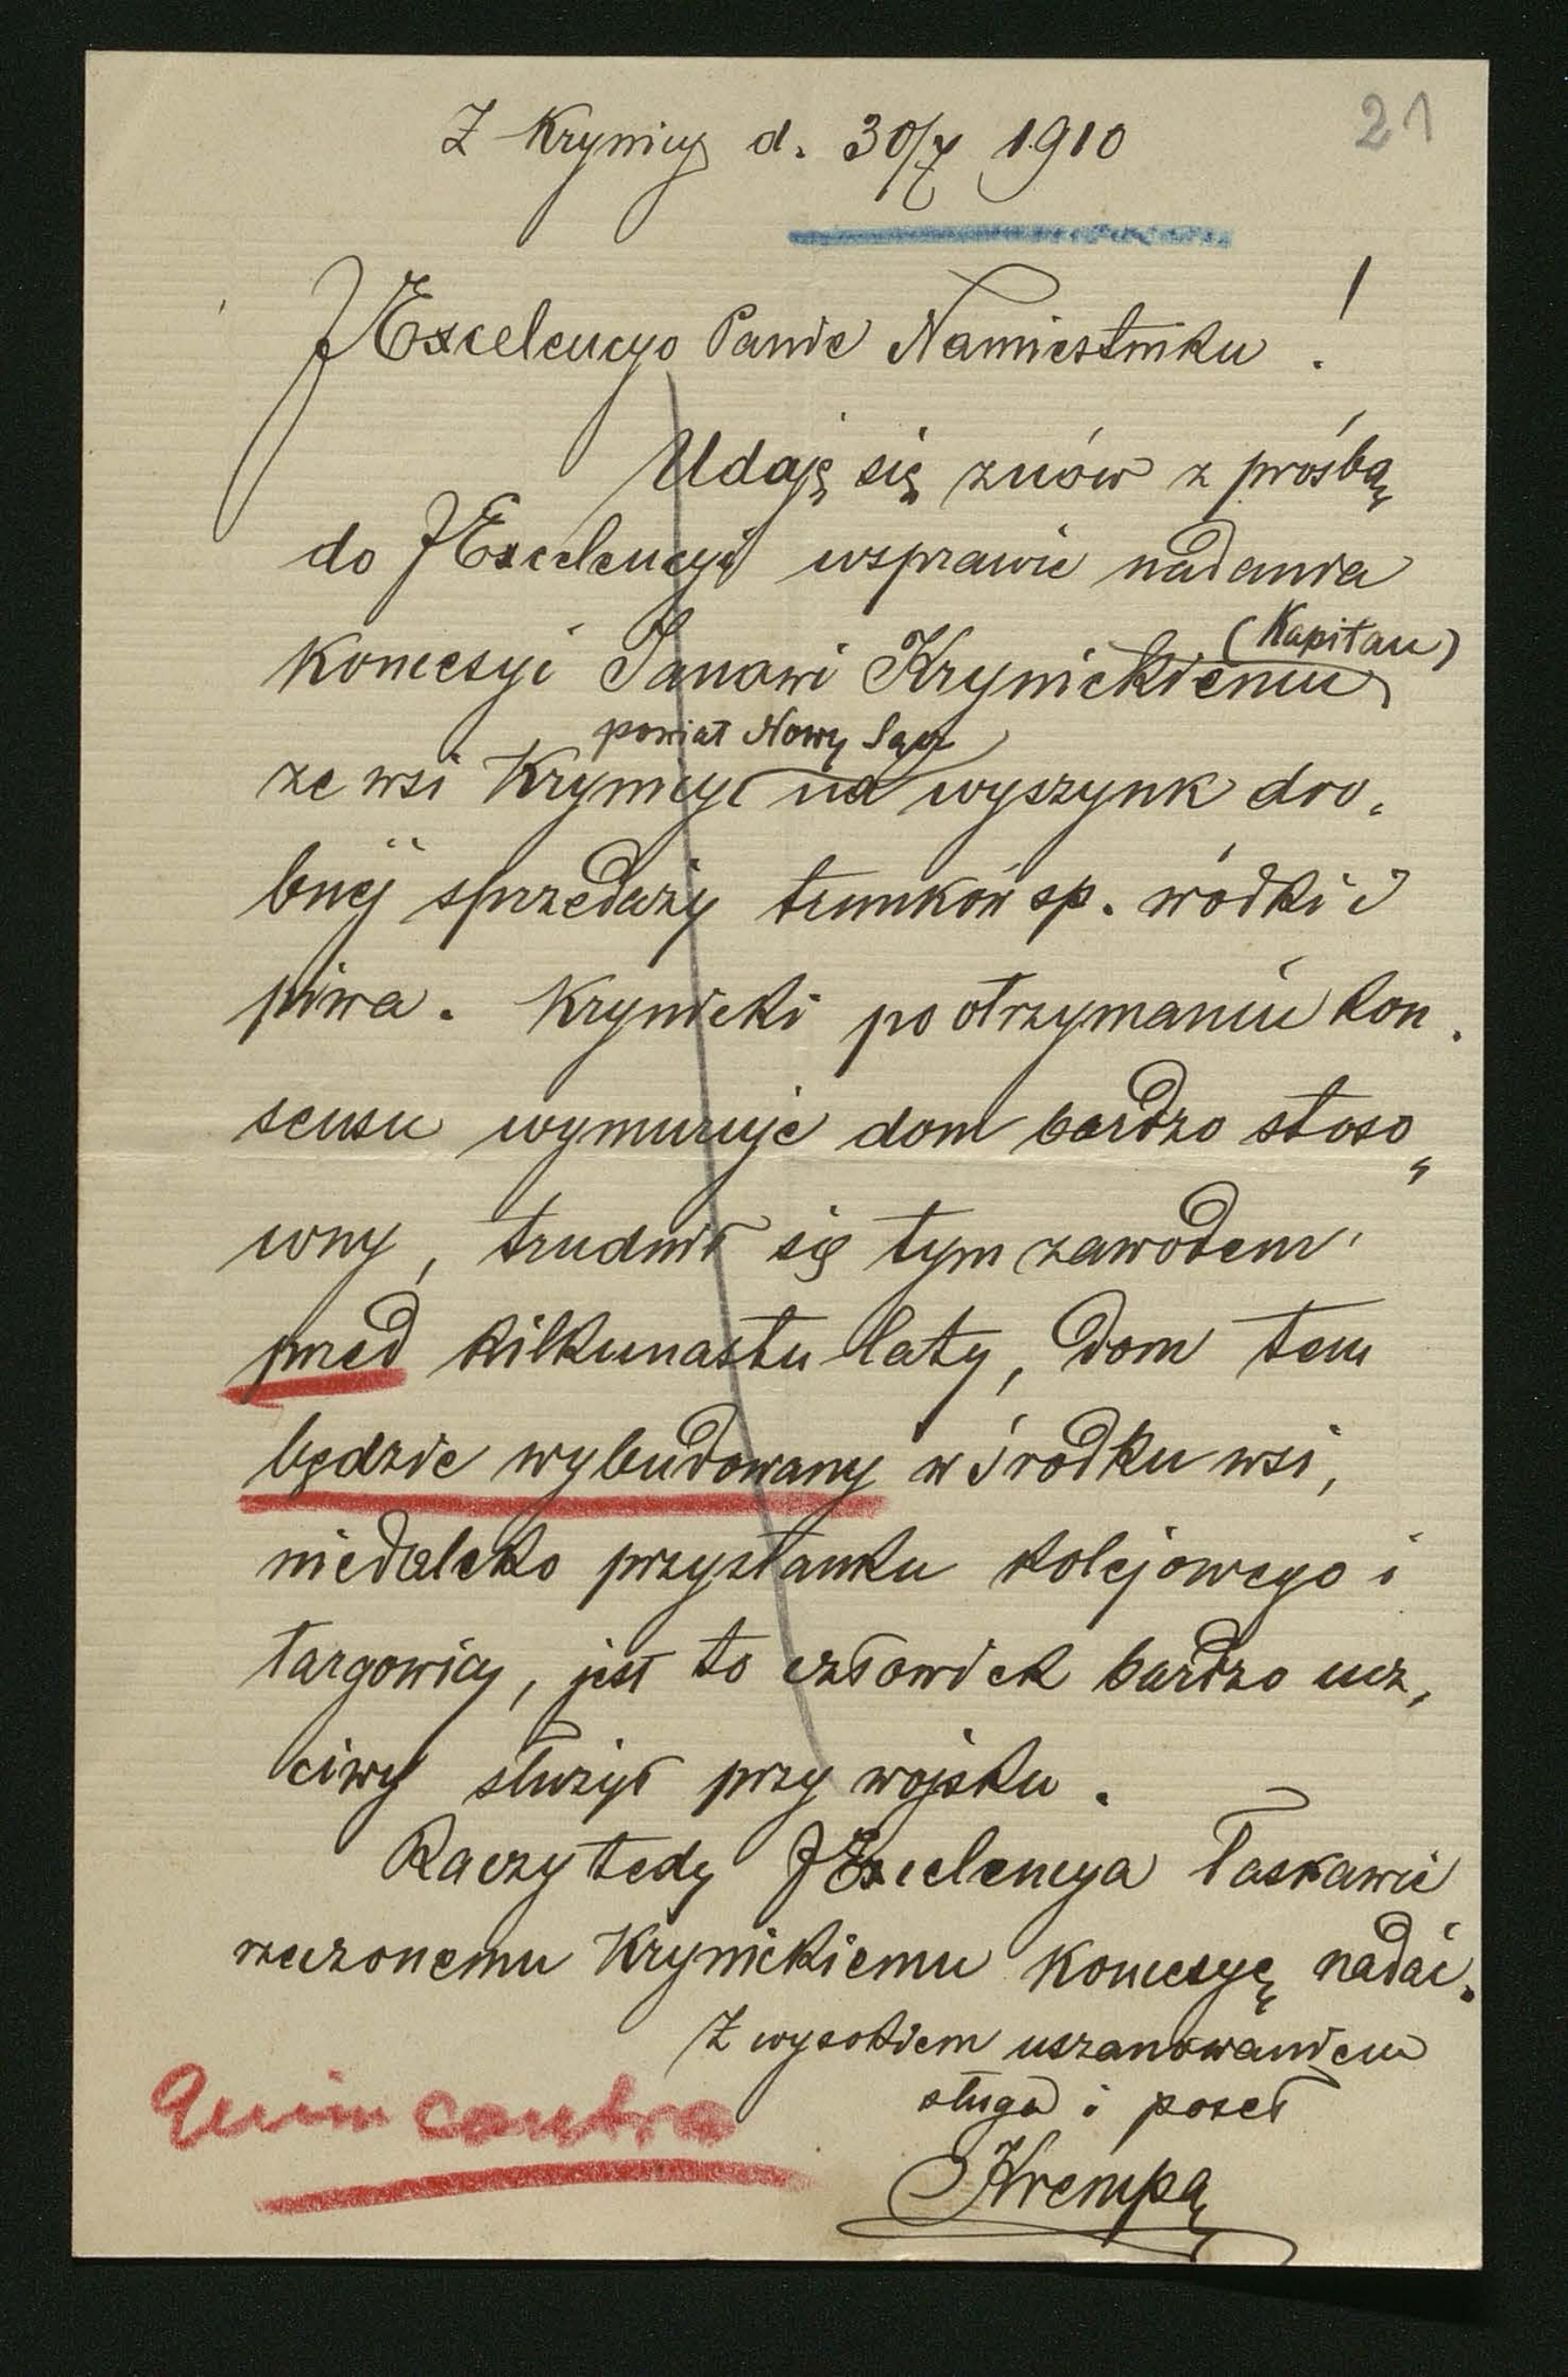 21
Z Krynicy d. 30/7 1910
JExcelencyo Panie Namiestniku !
Udaję się znów z prośbą
do JExcelencyi wsprawie nadania
Koncesyi Janowi Krynickiemu
(Kapitan)
powiat Nowy Sącz
ze wsi Krynicy na wyszynk dro,
bnej sprzedaży trunków sp. wódki i
piwa. Krynicki po otrzymaniu kon.
sensu wymuruje dom bardzo stoso,
wny, trudnił się tym zawodem
pred kilkunastu laty, dom ten
będzie wybudowany w środku wsi,
niedaleko przystanku kolejowego i
targowicy, jest to człowiek bardzo ucz,
ciwy służył przy wojsku.
Raczy tedy JExcelencya łaskawie
rzeczonemu Krynickiemu Koncesyę nadać.
Z wysokiem uszanowaniem
sługa i poseł
Krempa
contra